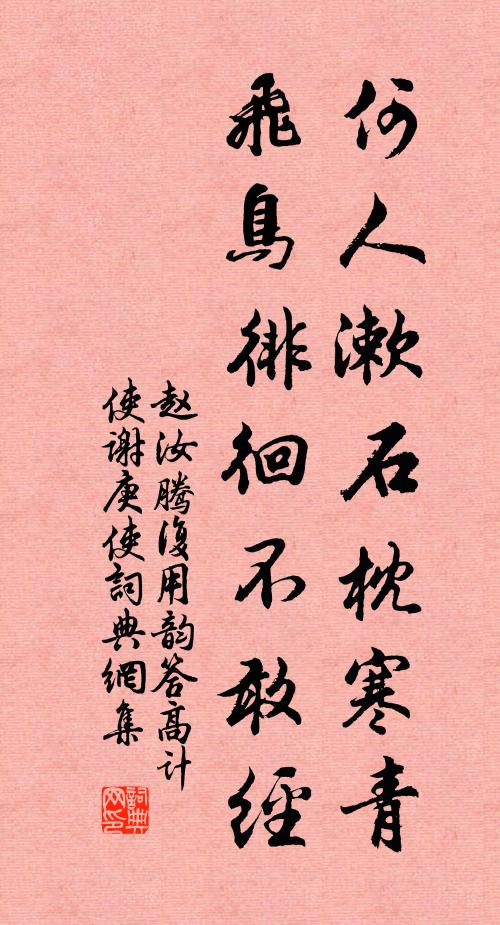 何人漱石枕寒青
飛鳥徘徊不敢經
赵汝騰復用韵答高计
使谢庾使詞典網集
詞典网印